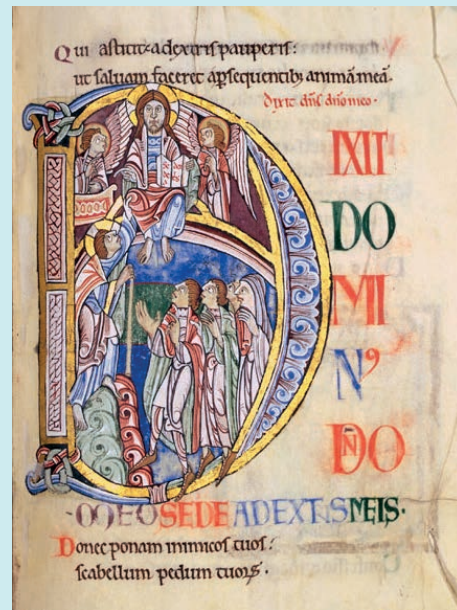 Qui astitit a dextris pauperis:
ut saluam faceret a ꝑsequentibꝫ animā meā.
Dixit dn̄s dn̄o meo.
DIXIT
DO
MI
N⁹
DN̄O
MEO SEDE A DEXTRIS MEIS.
Donec ponam inimicos tuos:
scabellum pedum tuoꝝ.